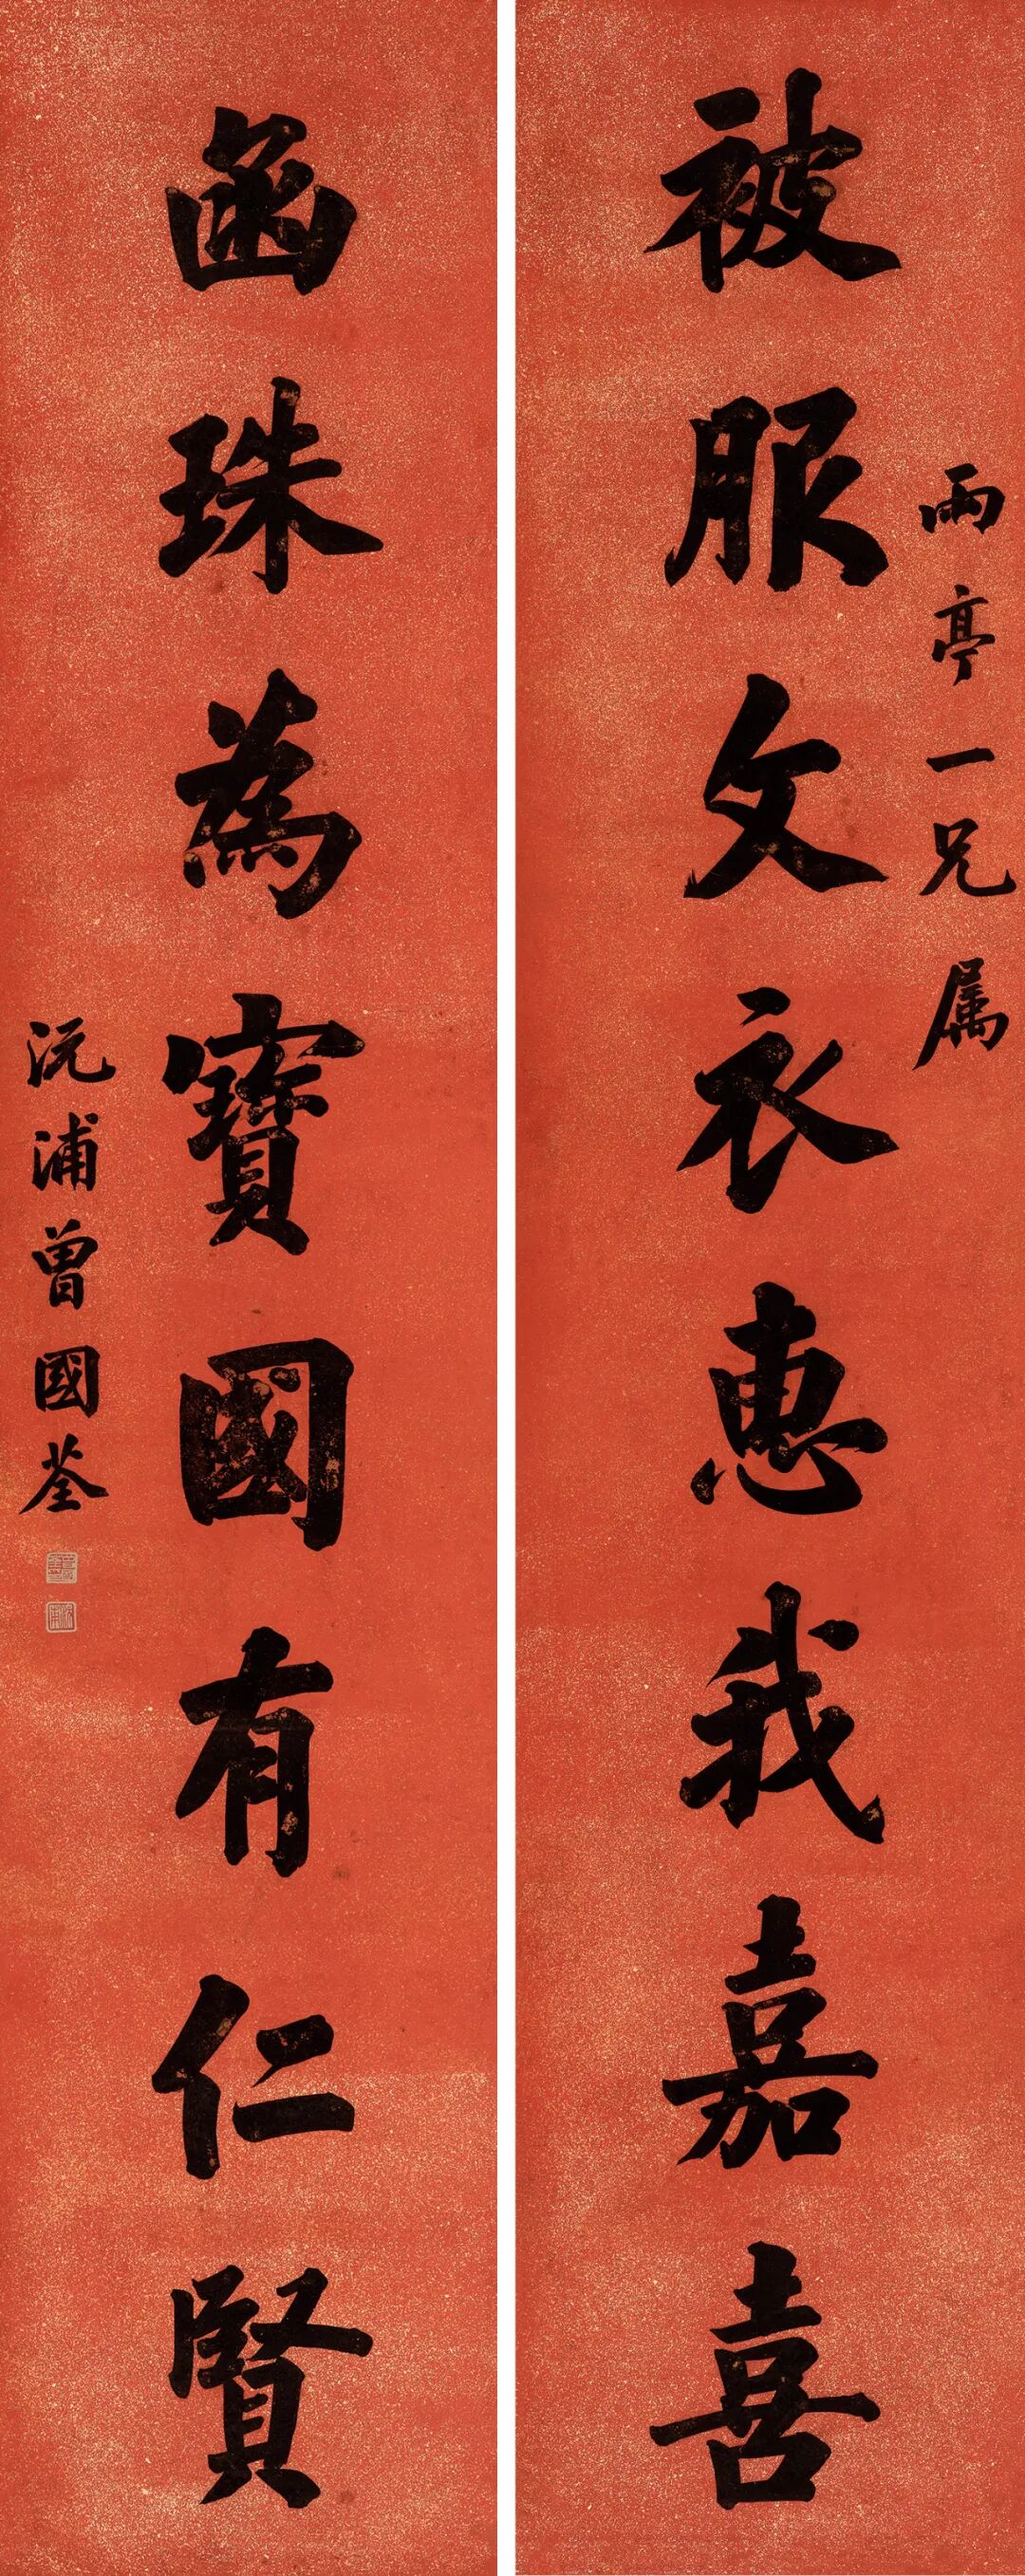 雨亭一兄属
被服文衣惠我嘉喜
函珠為寶國有仁賢
沅浦曾國荃